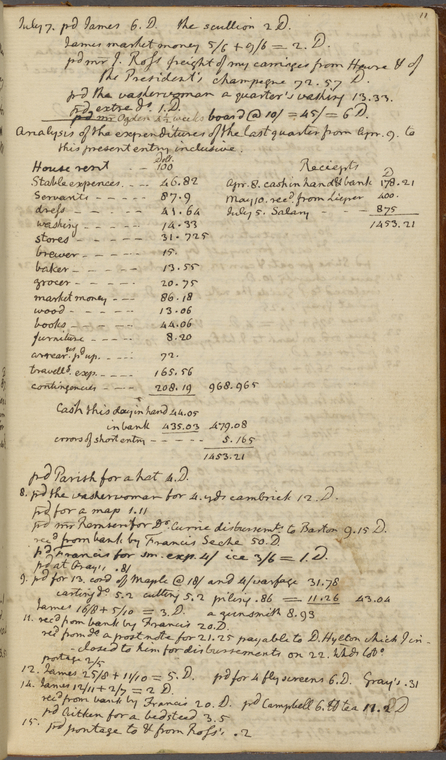 11
July 7. pd James 6. D. the scullion 2 D.
James market money 5/6 + 9/6 = 2. D.
pd mr J. Ross freight of my carriages from Havre & of
the President's champagne 72.57 D.
pd the washerwoman a quarter's washing 13.33.
pd extra do. 1. D.
pd mr Ogden weeks board @ 10/ = 45/ = 6 D.
Analysis of the expenditures of the last quarter from Apr. 9. to
this present entry inclusive.
House rent - - Doll. 100
Stable expences. - - 46.82
Servants - - - 87.9
dress - - - - 41.64
washing - - - - 14.33
stores - - - - 31.725
brewer - - - - 15.
baker - - - - 13.55
grocer - - - - 20.75
market money - - - 86.18
wood - - - - 13.06
books - - - - 44.06
furniture - - - - 8.20
arrearages pd up. - - - 72.
travellg. exp. - - - 165.56
contingencies - - - - 208.19 968.965
Cash this day in hand 44.05
in bank 435.03 479.08
errors of short entry - - - - - 5.165
1453.21
Receipts
D
Apr. 8. cash in hand & bank 178.21
May 10. recd. from Lieper 400.
July 5. Salary - - - 875
1453.21
pd Parish for a hat 4. D.
8. pd the washerwoman for 4. yds cambrick 12. D.
pd for a map 1.11
pd mr Remsen for Dr Currie disbursemts. to Barton 9.15 D.
recd from bank by Francis Seche 50. D.
pd Francis for sm. exp. 4/ ice 3/6 = 1. D.
pd at Gray's .81
9. pd for 13. cord of Maple @ 18/ and 4/ warfage 31.78
carting do 5.2 cutting 5.2 piling .86 = 11.26 43.04
James 16/8 + 5/10 = 3. D. a gunsmith 8.93
11. recd from bank by Francis 20. D.
recd from do a post note for 21.25 payable to D. Hylton which I in-
-closed to him for disbursements on 22. hhds tobo
portage 2/5
12. James 25/8 + 11/10 = 5. D. pd for 4 fly screens 6. D. Gray's .31
14. James 12/11 + 2/7 = 2 D.
recd from bank by Francis 20. D. pd Campbell 6. lb tea 11.2 D
pd Aitken for a bedsted 3.5
15. pd portage to & from Ross's .2